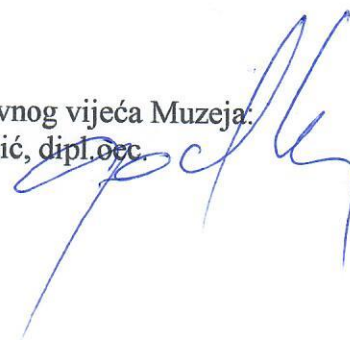 vnog vijeća Muzeja:
ić, dipl.oec.